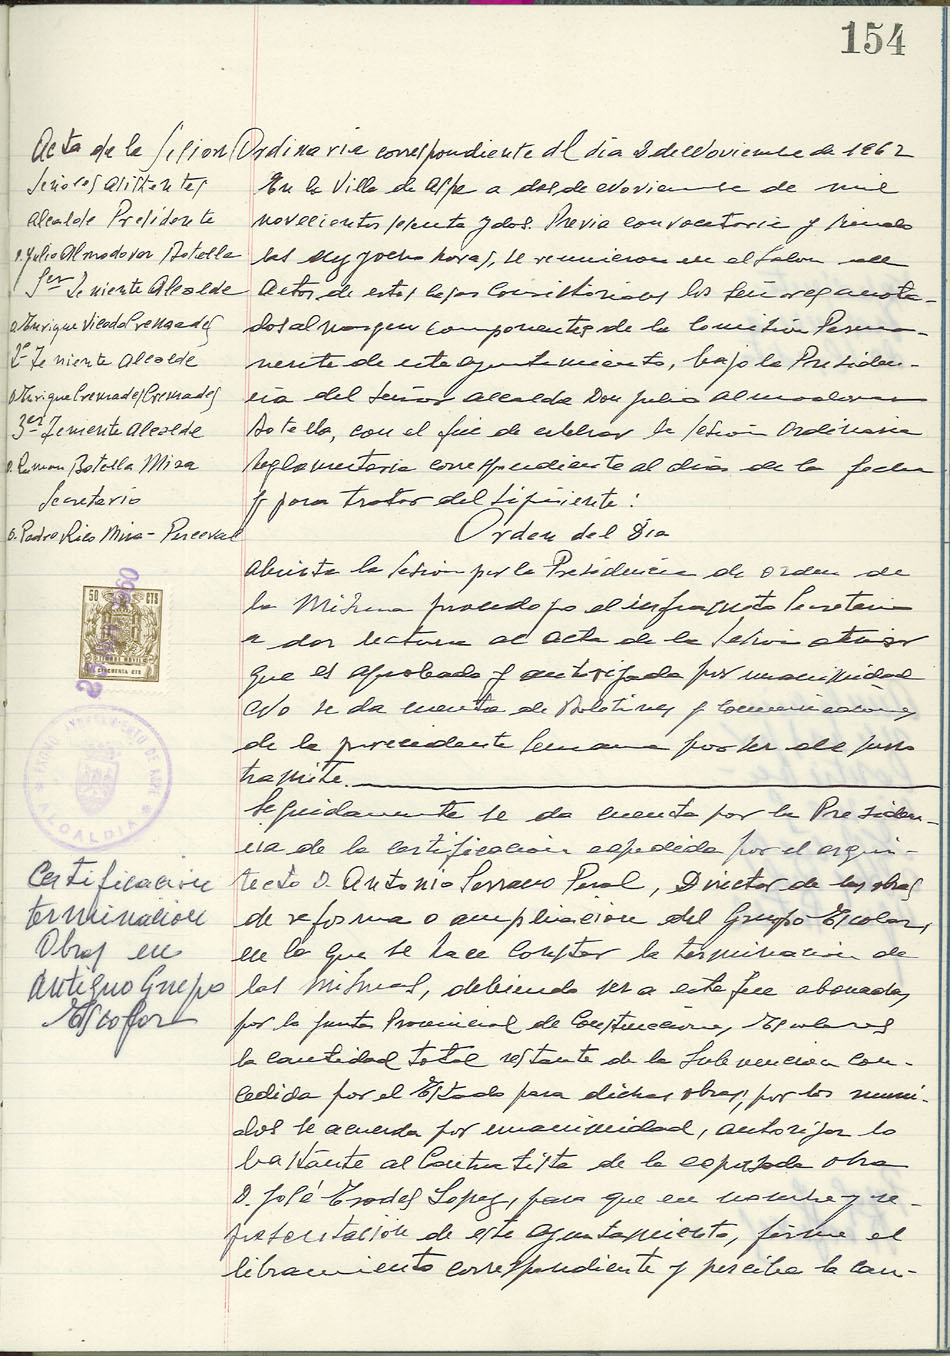 154
Acta de la Sesion Ordinaria correspondiente al dia 2 de Noviembre de 1962
Señores asistentes
Alcalde Presidente
D. Julio Almodovar Botella
1er Teniente Alcalde
D. Enrique Vicedo Cremades
2º Teniente Alcalde
D. Enrique Cremades Cremades
3er Teniente Alcalde
D. Ramon Botella Mira
Secretario
D. Pedro Rico Mira-Perceval
En la Villa de Aspe a dos de Noviembre de mil
novecientos sesenta y dos. Previa convocatoria y siendo
las diez y ocho horas, se reunieron en el Salon de
Actos de estas Casas Consistoriales los Señores anota-
dos al margen componentes de la Comisión Perma-
nente de este Ayuntamiento, bajo la Presiden-
cia del Señor Alcalde Don Julio Almodovar
Botella, con el fin de celebrar la sesión Ordinaria
reglamentaria correspondiente al dia de la fecha
y para tratar del siguiente:
Orden del Dia
Abierta la sesion por la Presidencia de orden de
la Misma procedo yo el infrascrito Secretario
a dar lectura al acta de la sesión anterior
que es aprobada y autorizada por unanimidad
No se da cuenta de Boletines y comunicaciones
de la precedente semana por ser de puro
tramite.
Seguidamente se da cuenta por la Presiden-
cia de la certificacion expedida por el arqui-
tecto D. Antonio Serrano Peral, Director de las obras
de reforma o ampliación del Grupo Escolar,
en la que se hace constar la terminacion de
las Mismas, debiendo ser a este fin abonadas
por la Junta Provincial de Construcciones Escolares
la cantidad total restante de la Subvencion con-
cedida por el Estado para dichas obras, por los reuni-
dos se acuerda por unanimidad, autorizar lo
bastante al Contratista de la expresada obra
D. José Erades Lopez, para que en nombre y re-
presentación de este Ayuntamiento, firme el
libramiento correspondiente y perciba la can-
50 CTS
CINCUENTA CTS
EXCMO. AYUNTAMIENTO DE ASPE
ALCALDIA
Certificación
terminación
Obras en
Antiguo Grupo
Escolar